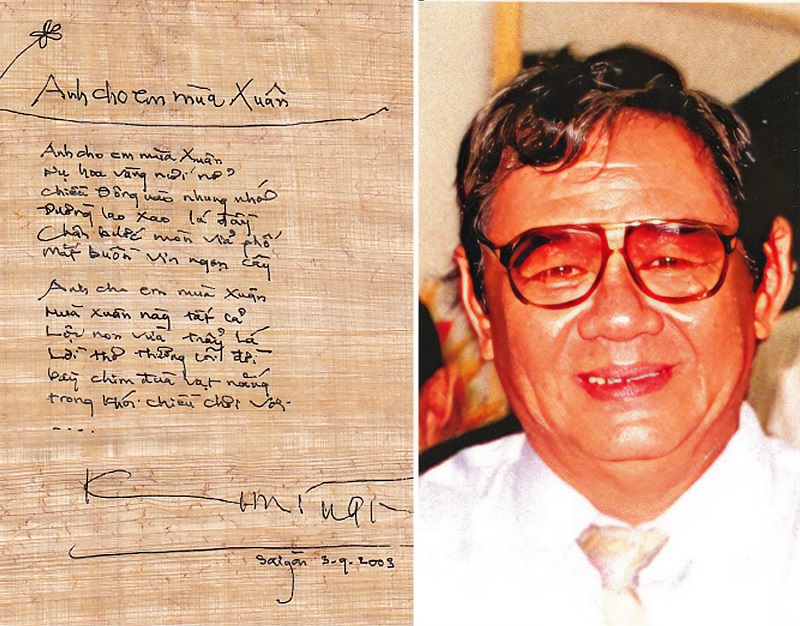 Anh cho em mùa Xuân
Anh cho em mùa Xuân
Nụ hoa vàng mới nở
Chiều Đông nào nhung nhớ
Đường lao xao lá đầy
Chân bước mòn vỉa phố
Mắt buồn vin ngọn cây
Anh cho em mùa Xuân
Mùa xuân này tất cả
Lộc non vừa trẩy lá
Lời thơ thương cõi đời
Bầy chim đùa vạt nắng
trong khói chiều chơi vơi
....
Kim Tuấn
Saigon 3-9-2003